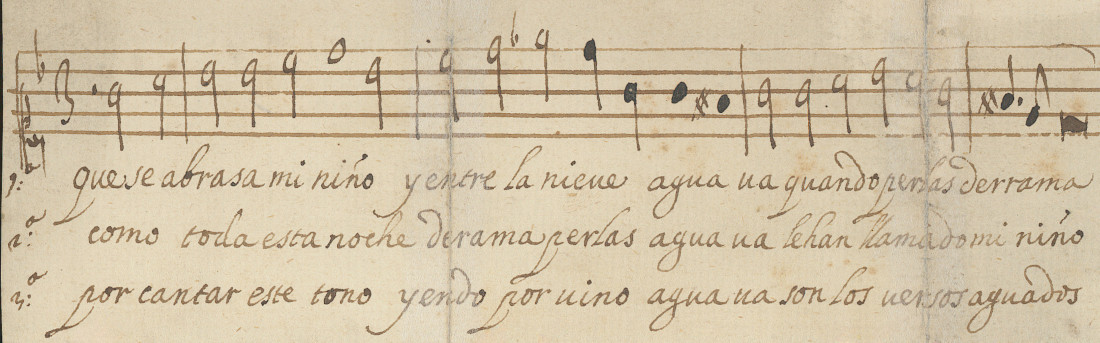 1.º que se abrasa mi niño y entre la nieue agua ua quando perlas derrama
2.º como toda esta noche derama perlas agua ua le han llamado mi niño
3.º por cantar este tono yendo por uino agua ua son los uersos aguados